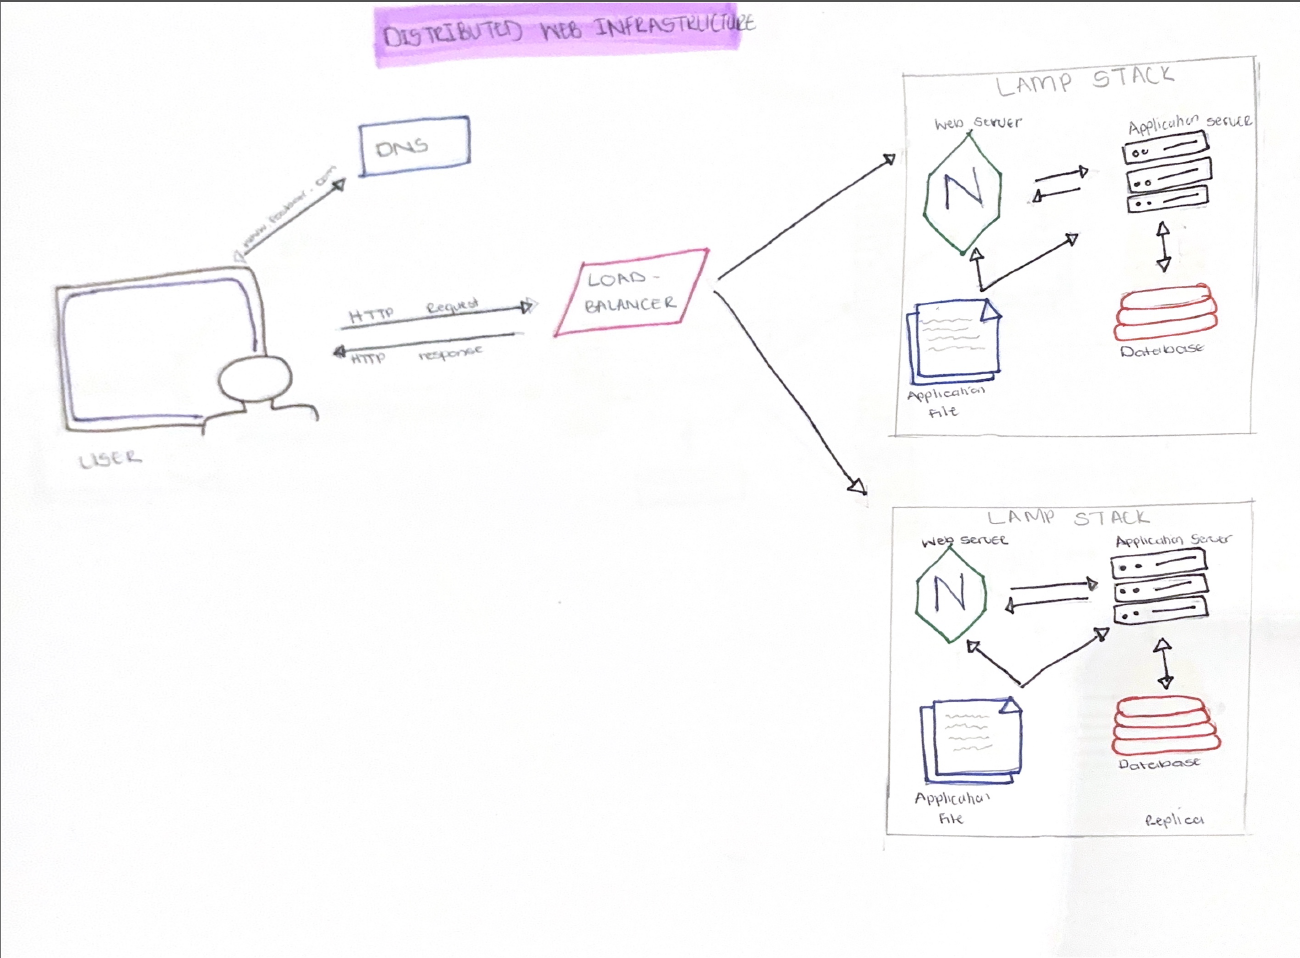 DISTRIBUTED WEB INFRASTRUCTURE
DNS
www.foobar.com
USER
HTTP Request
HTTP response
LOAD-
BALANCER
LAMP STACK
Web server
Application server
N
Application
File
Database
LAMP STACK
Web server
Application Server
N
Application
File
Database
Replica